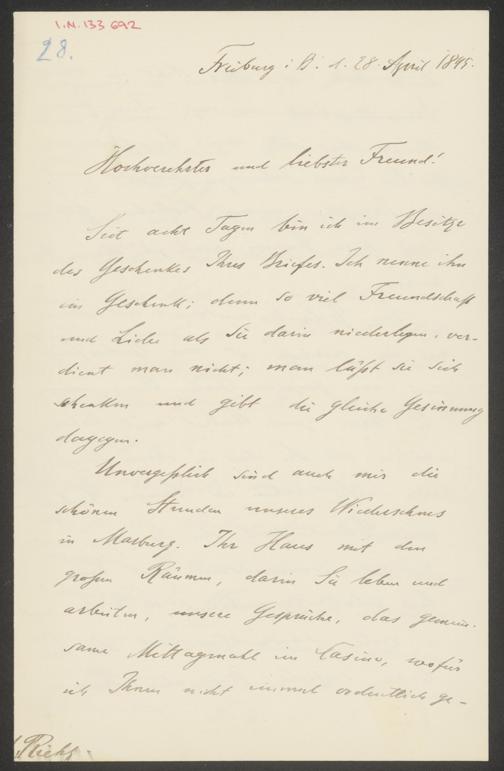 I.N. 133 692
28.
Freiburg i. B. d. 28. April 1895.
Hochverehrter und liebster Freund!
Seit acht Tagen bin ich im Besitze
des Geschenkes Ihres Briefes. Ich nenne ihn
ein Geschenk; denn so viel Freundschaft
und Liebe als Sie darin niederlegen, ver-
dient man nicht; man läßt sie sich
schenken und gibt die gleiche Gesinnung
dagegen.
Unvergeßlich sind auch mir die
schönen Stunden unseres Wiedersehens
in Marburg. Ihr Haus mit den
großen Räumen, darin Sie leben und
arbeiten, unsere Gespräche, das gemein-
same Mittagmahl im Casino, wofür
ich Ihnen nicht einmal ordentlich ge-
Riehl